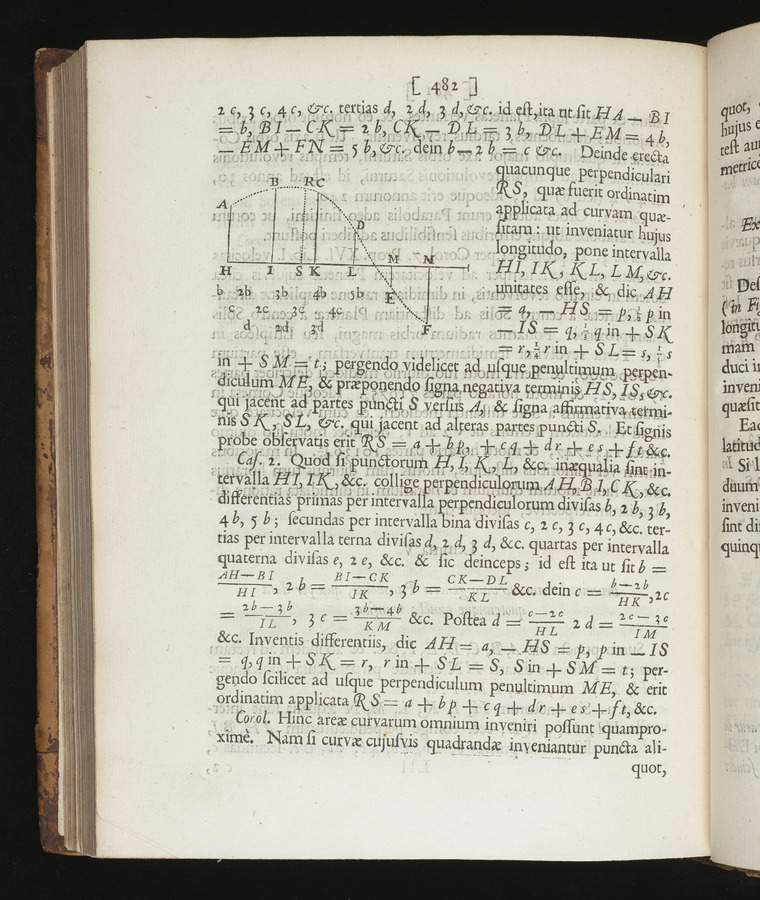 [ 482 ]
2 c, 3 c, 4 c, &c. tertias d, 2 d, 3 d, &c. id eſt, ita ut ſit HA — BI
= b, BI — CK = 2 b, CK — DL = 3 b, DL + EM = 4 b,
— EM + FN = 5 b, &c. dein b — 2 b = c &c. Deinde erecta
quacunque perpendiculari
RS, quæ fuerit ordinatim
applicata ad curvam quæ-
ſitam: ut inveniatur hujus
longitudo, pone intervalla
HI, IK, KL, LM, &c.
unitates eſſe, & dic AH
= a, — HS = p, ½ p in
— IS = q, ⅓ q in + SK
= r, ¼ r in + SL = s, ⅕ s
A B R C D
H I S K L M N
E
F
b 2b 3b 4b 5b
c 2c 3c 4c
d 2d 3d
in + SM = t; pergendo videlicet ad uſque penultimum perpen-
diculum ME, & præponendo ſigna negativa terminis HS, IS, &c.
qui jacent ad partes puncti S verſus A, & ſigna affirmativa termi-
nis SK, SL, &c. qui jacent ad alteras partes puncti S. Et ſignis
probe obſervatis erit RS = a + bp, + cq + dr + es + ft &c.
Caſ. 2. Quod ſi punctorum H, I, K, L, &c. inæqualia ſint in-
tervalla HI, IK, &c. collige perpendiculorum AH, BI, CK, &c.
differentias primas per intervalla perpendiculorum diviſas b, 2 b, 3 b,
4 b, 5 b; ſecundas per intervalla bina diviſas c, 2 c, 3 c, 4 c, &c. ter-
tias per intervalla terna diviſas d, 2 d, 3 d, &c. quartas per intervalla
quaterna diviſas e, 2 e, &c. & ſic deinceps; id eſt ita ut ſit b =
AH—BI / HI, 2 b = BI—CK / IK, 3 b = CK—DL / KL &c. dein c = b—2b / HK, 2c
= 2b—3b / IL, 3 c = 3b—4b / KM &c. Poſtea d = c—2c / HL 2 d = 2c—3c / IM
&c. Inventis differentiis, dic AH = a, — HS = p, p in — IS
= q, q in + SK = r, r in + SL = S, S in + SM = t; per-
gendo ſcilicet ad uſque perpendiculum penultimum ME, & erit
ordinatim applicata RS = a + bp + cq + dr + es + ft, &c.
Corol. Hinc areæ curvarum omnium inveniri poſſunt quampro-
ximè. Nam ſi curvæ cujuſvis quadrandæ inveniantur puncta ali-
quot,
quot,
hujus
metric
longit
mam
duci
inveni
quæſit
latitud
duum
inveni
quinq